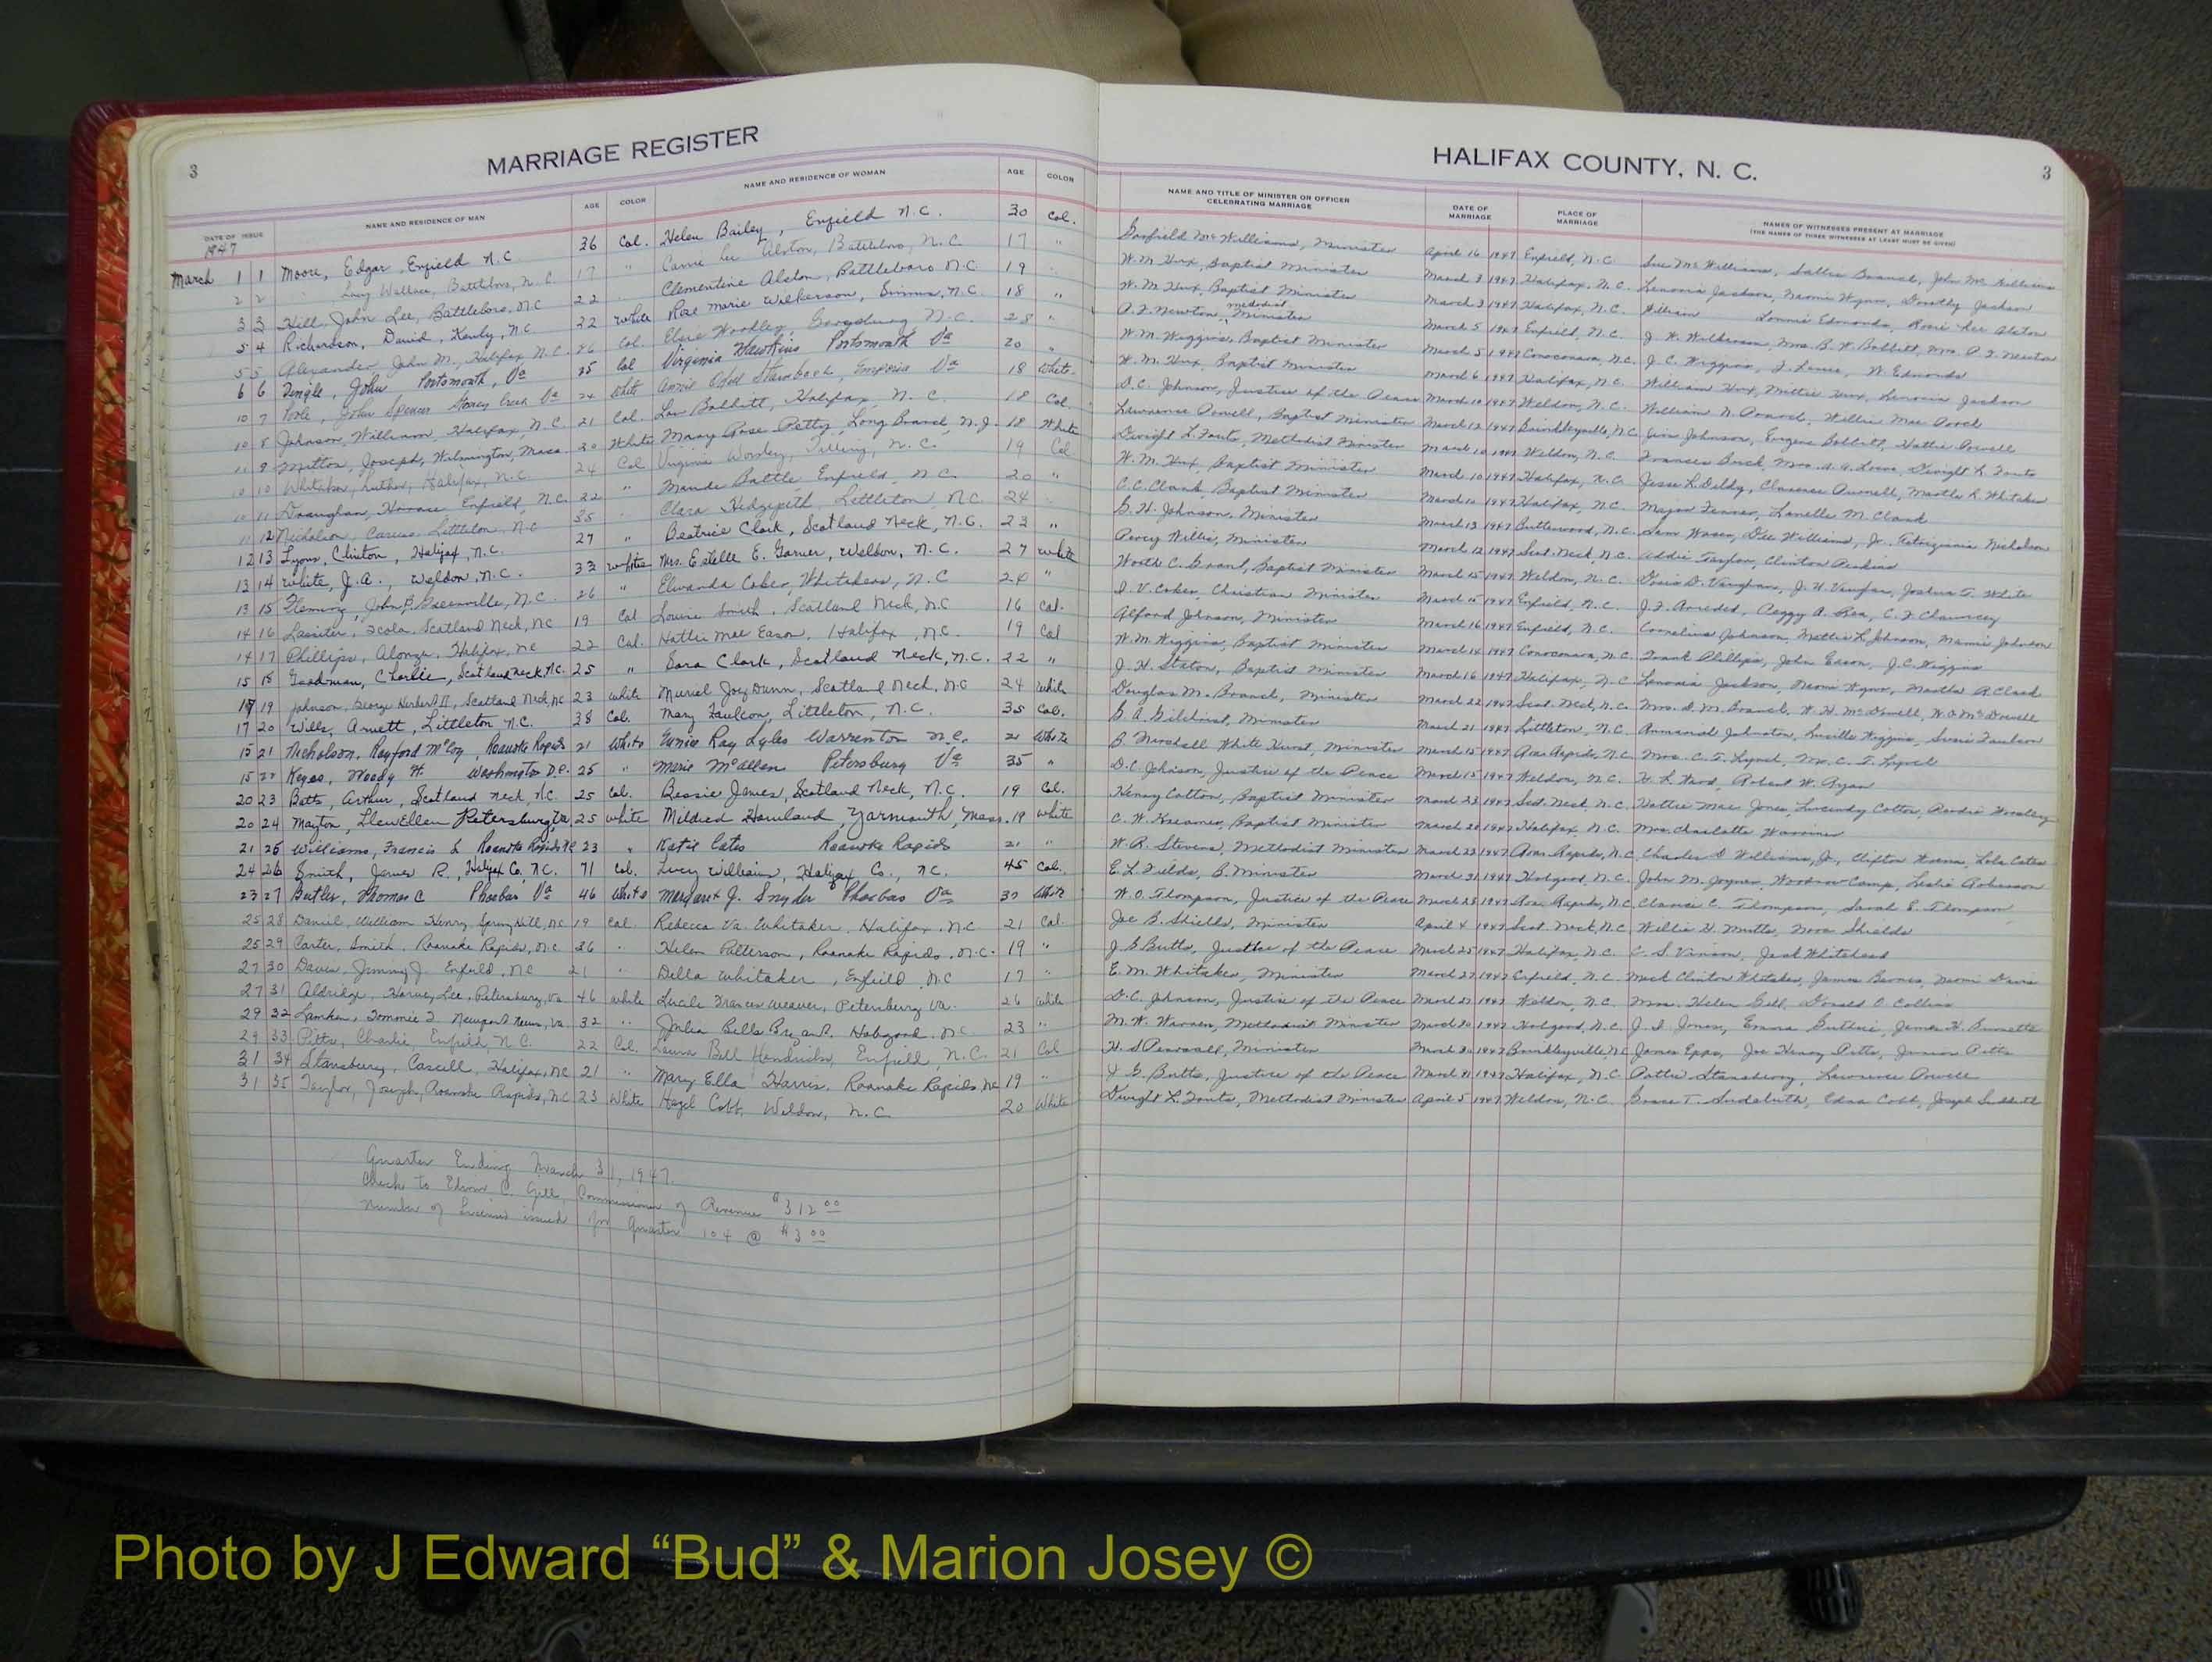 3 MARRIAGE REGISTER
HALIFAX COUNTY, N. C. 3
DATE OF ISSUE NAME AND RESIDENCE OF MAN AGE COLOR NAME AND RESIDENCE OF WOMAN AGE COLOR
NAME AND TITLE OF MINISTER OR OFFICER CELEBRATING MARRIAGE DATE OF MARRIAGE PLACE OF MARRIAGE NAMES OF WITNESSES PRESENT AT MARRIAGE
(THE NAMES OF THREE WITNESSES AT LEAST MUST BE GIVEN)
1947
March 1 1 Moore, Edgar, Enfield N.C. 36 Col. Helen Bailey, Enfield N.C. 30 Col. Garfield McWilliams, Minister April 16 1947 Enfield, N.C. Sue McWilliams, Sallie Branch, John McWilliams
2 2 Lucy Wallace, Battleboro, N.C. 17 " Carrie Lee Alston, Battleboro, N.C. 17 " W.M. Hux, Baptist Minister March 3 1947 Halifax, N.C. Lenora Jackson, Naomi Wynn, Dorothy Jackson
3 3 Hill, John Lee, Battleboro, N.C. 22 Clementine Alston, Battleboro N.C. 19 W.M. Hux, Baptist Minister March 3 1947 Halifax, N.C. William Lonnie Edmonds, Rosie Lee Alston
5 4 Richardson, David, Kenly, N.C. 22 white Rose Marie Wilkerson, Simms, N.C. 18 " A.F. Newton, Methodist Minister March 5 1947 Enfield, N.C. J.W. Wilkerson, Mrs. B.W. Babbitt, Mrs. A.F. Newton
5 5 Alexander, John M., Halifax N.C. 26 Col. Elsie Woodley, Garysburg N.C. 28 " W.M. Wiggins, Baptist Minister March 5 1947 Conoconara, N.C. J.C. Wiggins, J. Lewis, W. Edmonds
6 6 Dingle, John Portsmouth, Va 25 Col Virginia Hawkins Portsmouth Va 20 " W.M. Hux, Baptist Minister March 6 1947 Halifax, N.C. William Hux, Mittie Hux, Lenora Jackson
10 7 Pole, John Spencer Stoney Creek Va 24 White Annie Odell Stainback, Emporia Va 18 White D.C. Johnson, Justice of the Peace March 10 1947 Weldon, N.C. William N. Pooch, Willie Mae Pooch
10 8 Johnson, William, Halifax, N.C. 21 Col. Lou Babbitt, Halifax, N.C. 18 Col. Lawrence Powell, Baptist Minister March 12 1947 Brinkleyville, N.C. Johnson, Eugene Babbitt, Hattie Powell
11 9 Mittos, Joseph, Wilmington, Mass. 20 White Mary Rose Petty, Long Branch, N.J. 18 White Dwight L. Fouts, Methodist Minister March 10 1947 Weldon, N.C. Frances Buck, Mrs. Dwight L. Fouts
10 10 Whitaker, Luther, Halifax, N.C. 24 Col Virginia Worsley, Tillery, N.C. 19 Col W.M. Hux, Baptist Minister March 10 1947 Halifax, N.C. Jesse L. Deldy, Clarence Purnell, Martha R. Whitaker
10 11 Horace Enfield, N.C. 22 " Maude Battle Enfield, N.C. 20 " C.C. Clark Baptist Minister March 10 1947 Halifax, N.C. Major Tenner, Lenelle M. Clark
11 12 Nicholson, Littleton, N.C. 35 Clara Hedgepeth Littleton N.C. 24 G.H. Johnson, Minister March 13 1947 Butterwood, N.C. Sam Williams, Jr., Nicholson
12 13 Lyons, Clinton, Halifax, N.C. 27 " Beatrice Clark, Scotland Neck, N.C. 23 " Percy Willis, Minister March 12 1947 Scot. Neck, N.C. Addie Taylor, Clinton Perkins
13 14 White, J.A., Weldon, N.C. 33 white Mrs. Estelle E. Garner, Weldon, N.C. 27 white Worth C. Grant, Baptist Minister March 15 1947 Weldon, N.C. D. Vaughan, J.H. Vaughan, Joshua T. White
13 15 Fleming, John P. Greenville, N.C. 26 " Elwanda Coker, Whitakers, N.C. 20 " D.V. Coker, Christian Minister March 15 1947 Enfield, N.C. Peggy A. Rea, C.F. Clauncey
14 16 Lassiter, Icola, Scotland Neck, NC 19 Col Louise Smith, Scotland Neck, N.C. 16 Col. Alford Johnson, Minister March 16 1947 Enfield, N.C. Cornelius Johnson, Mattie L. Johnson, Mamie Johnson
14 17 Phillips, Alonza, Halifax, NC 22 Col. Hattie Mae Eason, Halifax, N.C. 19 Col W.M. Wiggins, Baptist Minister March 14 1947 Conoconara, N.C. Frank Phillips, John Eason, J.C. Wiggins
15 18 Goodman, Charlie, Scotland Neck, N.C. 25 " Sara Clark, Scotland Neck, N.C. 22 " J.H. Staton, Baptist Minister March 16 1947 Halifax, N.C. Lenora Jackson, Naomi Wynn, Martha A. Clark
17 19 Johnson, George Herbert, Scotland Neck, NC 23 white Muriel Joy Dunn, Scotland Neck, N.C 24 white Douglas M. Branch, Minister March 22 1947 Scot. Neck, N.C. Mrs. D.M. Branch, W.H. McDowell, W.O. McDowell
17 20 Wills, Arnett, Littleton N.C. 38 Col. Mary Faulcon, Littleton, N.C. 35 Col. G.A. Gilchrist, Minister March 21 1947 Littleton, N.C. Armand Johnston, Lucille Wiggins, Susie Faulcon
15 21 Nicholson, Rayford McCoy, Roanoke Rapids 21 White Eunice Ray Lyles Warrenton N.C. 21 White B. Marshall White Hurst, Minister March 15 1947 Roa. Rapids, N.C. Mrs. C.T. Lynch, Mr. C.T. Lynch
15 22 Keyes, Woody H. Washington D.C. 25 " Marie McCallen Petersburg Va 35 " D.C. Johnson, Justice of the Peace March 15 1947 Weldon, N.C. W.L. Wood, Robert W. Ryan
20 23 Batts, Arthur, Scotland Neck, N.C. 25 Col. Bessie James, Scotland Neck, N.C. 19 Col. Henry Cotton, Baptist Minister March 23 1947 Scot. Neck N.C. Hattie Mae Jones, Lucendy Cotton, Worsley
20 24 Mayton, Llewellen Petersburg, Va 25 white Mildred Howland Yarmouth, Mass. 19 white C.W. Kreamer, Baptist Minister March 20 1947 Halifax, N.C. Mrs. Charlotte Warriner
21 25 Williams, Francis L Roanoke Rapids NC 23 " Katie Cates Roanoke Rapids 21 " W.R. Stevens, Methodist Minister March 23 1947 Roa. Rapids, N.C. Charles D. Williams, Jr., Clifton, Lola Cates
24 26 Smith, James R., Halifax Co., N.C. 71 Col. Lucy Williams, Halifax Co., N.C. 45 Col. E.L. Fields, B. Minister March 31 1947 Hobgood, N.C. John M. Joyner, Woodrow Camp, Leslie Roberson
23 27 Butler, Thomas C Phoebus Va 46 White Margaret J. Snyder Phoebus Va 37 White W.O. Thompson, Justice of the Peace March 25 1947 Roa. Rapids, N.C. Clarice C. Thompson, Sarah E. Thompson
25 28 Daniel, William Henry, Spring Hill, NC 19 Col. Rebecca Va. Whitaker, Halifax, N.C 21 Col. Joe B. Shields, Minister April 4 1947 Scot. Neck, N.C. Willie H. Mutts, Nora Shields
25 29 Carter, Smith, Roanoke Rapids, N.C. 26 " Helen Patterson, Roanoke Rapids, N.C. 19 " J.G. Butts, Justice of the Peace March 25 1947 Halifax, N.C. C.S. Vinson, Jack Whitehead
27 30 Davis, Jimmy J. Enfield, NC 21 " Della Whitaker, Enfield, NC 17 " E.M. Whitaker, Minister March 27 1947 Enfield, N.C. Mark Clinton Whitaker, James Barnes, Naomi Davis
27 31 Aldridge, Harvey Lee, Petersburg, Va 46 white Lucile Frances Weaver, Petersburg Va. 26 white D.C. Johnson, Justice of the Peace March 27 1947 Weldon, N.C. Mrs. Helen Gill, Donald C. Collins
29 32 Lamken, Tommie T Newport News, Va. 32 " Julia Bella Bryant, Hobgood, N.C. 23 " M.W. Warren, Methodist Minister March 30 1947 Hobgood, N.C. J.D. Jones, Emma Guthrie, James H. Burnette
29 33 Pitts, Charlie, Enfield, N.C. 22 Col. Laura Bell Hendricks, Enfield, N.C. 21 Col H.S Pearsall, Minister March 30 1947 Brinkleyville, N.C. James Epps, Joe Henry Pitts, Junior Pitts
31 34 Stansbury, Cascell, Halifax, NC 21 " Mary Ella Harris, Roanoke Rapids, NC 19 " J.G. Butts, Justice of the Peace March 31 1947 Halifax, N.C. Pattie Stansbury, Lawrence Powell
31 35 Taylor, Joseph, Roanoke Rapids, N.C 23 White Hazel Cobb, Weldon, N.C 20 White Dwight L. Fouts, Methodist Minister April 5 1947 Weldon, N.C. Bruce T. Sudduth, Edna Cobb, Joseph Sudduth
Quarter Ending March 31, 1947.
Check to Edwin C. Gill, Commissioner of Revenue $312 00
Number of License issued for Quarter 104 @ $3 00
Photo by J Edward “Bud” & Marion Josey ©